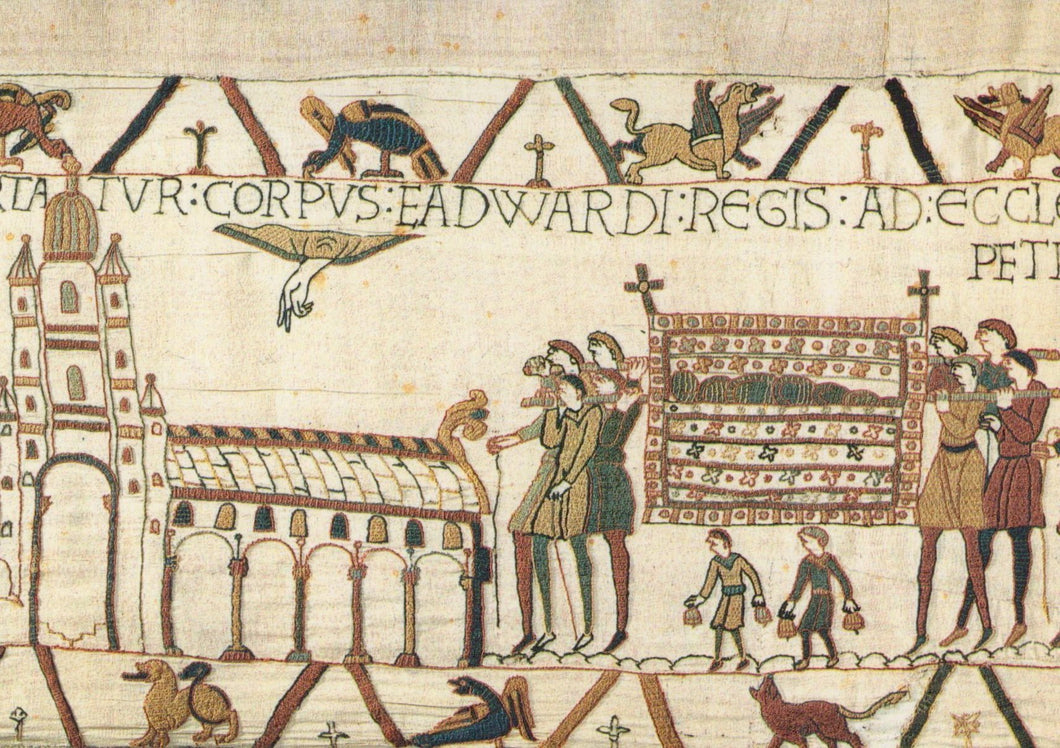 RTATVR:CORPVS:EADWARDI:REGIS:AD:ECCL
PETR